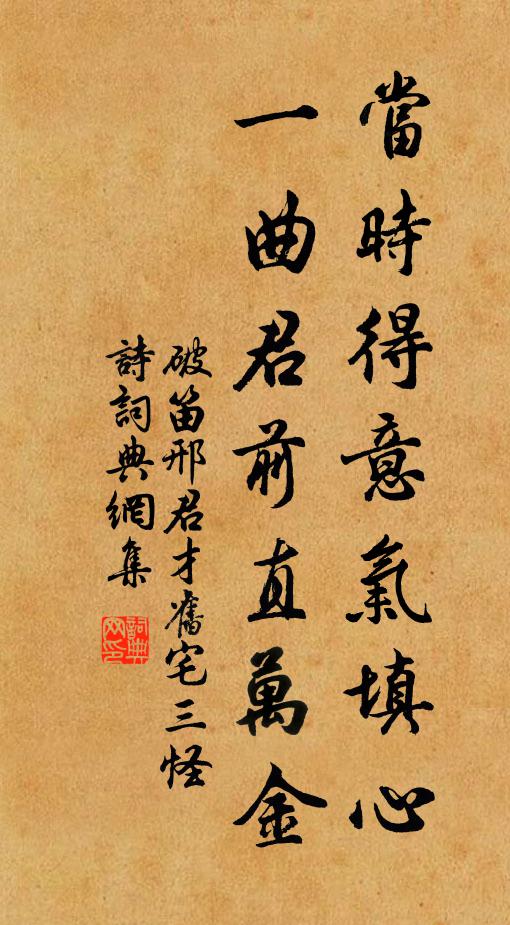 當時得意氣填心
一曲君前直萬金
破笛邢君才舊宅三怪
詩詞典網集
詞典網印